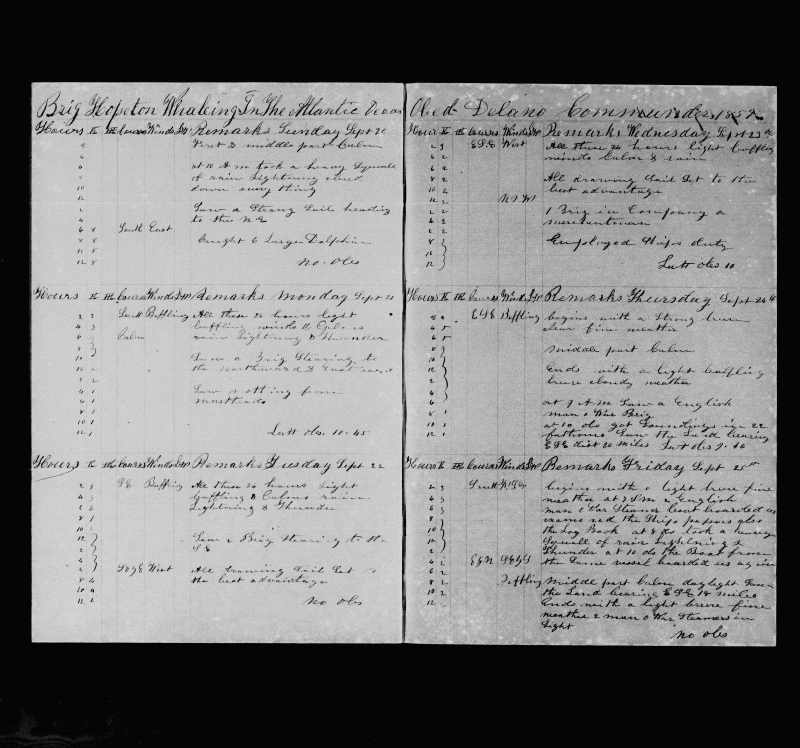 Brig Hopeton Whaleing In The Atlantic Ocean
Hours K HK Courses Winds LW Remarks Sunday Sept 20
2 First & middle part Calm
4
6 at 10 A m took a heavy Squall
8 of rain Lightning
10 down every thing
12
2 Saw a Strong Sail heading
4 to the N E
6 8 South East
8 8 Caught 6 Large Dolphin
10 8
12 8 No Obs
Hours K HK Courses Winds LW Remarks Monday Sept 21
2 South Baffling All these 24 hours light
4 baffling winds & Calms
6 Calm rain Lightning & Thunder
8
10 Saw a Brig Stearing to
12 the northward & East
2
4 1 Saw nothing from
6 1 mastheads
8 1
10 1
12 1 Latt obs 10.45
Hours K HK Courses Winds LW Remarks Tuesday Sept 22
2 SE Baffling All these 24 hours Light
4 Baffling & Calms rain
6 Lightning & Thunder
8
10
12 Saw a Brig Stearing to the
2 SE
4
6 West All drawing Sail Set to
8 4 the best advantage
10
12 No obs
Obed Delano Commander
Hours K HK Courses Winds LW Remarks Wednesday Sept 23
2 ESE West All these 24 hours light baffling
4 winds Calm & rain
6 2
8 2 All drawing Sail Set to the
10 2 best advantage
12 2
2 2 1 Brig in Company a
4 2 merchantman
6 2
8 Employed Ships duty
10
12 Latt obs 10
Hours K HK Courses Winds LW Remarks Thursday Sept 24
2 ESE Baffling begins with a Strong breeze
4 clear fine weather
6
8 middle part Calm
10
12 Ends with a light baffling
2 breeze cloudy weather
4
6 1 at 9 A M Saw a English
8 1 man o War Brig
10 1 at 10 do got Soundings in 22
12 1 fathoms Saw the Land bearing
ESE dist 20 miles Latt obs
Hours K HK Courses Winds LW Remarks Friday Sept 25
2 South begins with a light breeze fine
4 weather at 3 P m a English
6 man o War Steamer boat boarded us
8 examened the Ships papers also
10 the Log Book at 8 do took a heavy
12 Squall of rain Lightning &
2 Thunder at 10 do the Boat from
4 the Same vessel boarded us again
6 2
8 2 Baffling Middle part Calm daylight Saw
10 2 the Land bearing ESE 18 miles
12 Ends with a light breeze fine
weather 2 man o War Steamers in
Sight
No obs